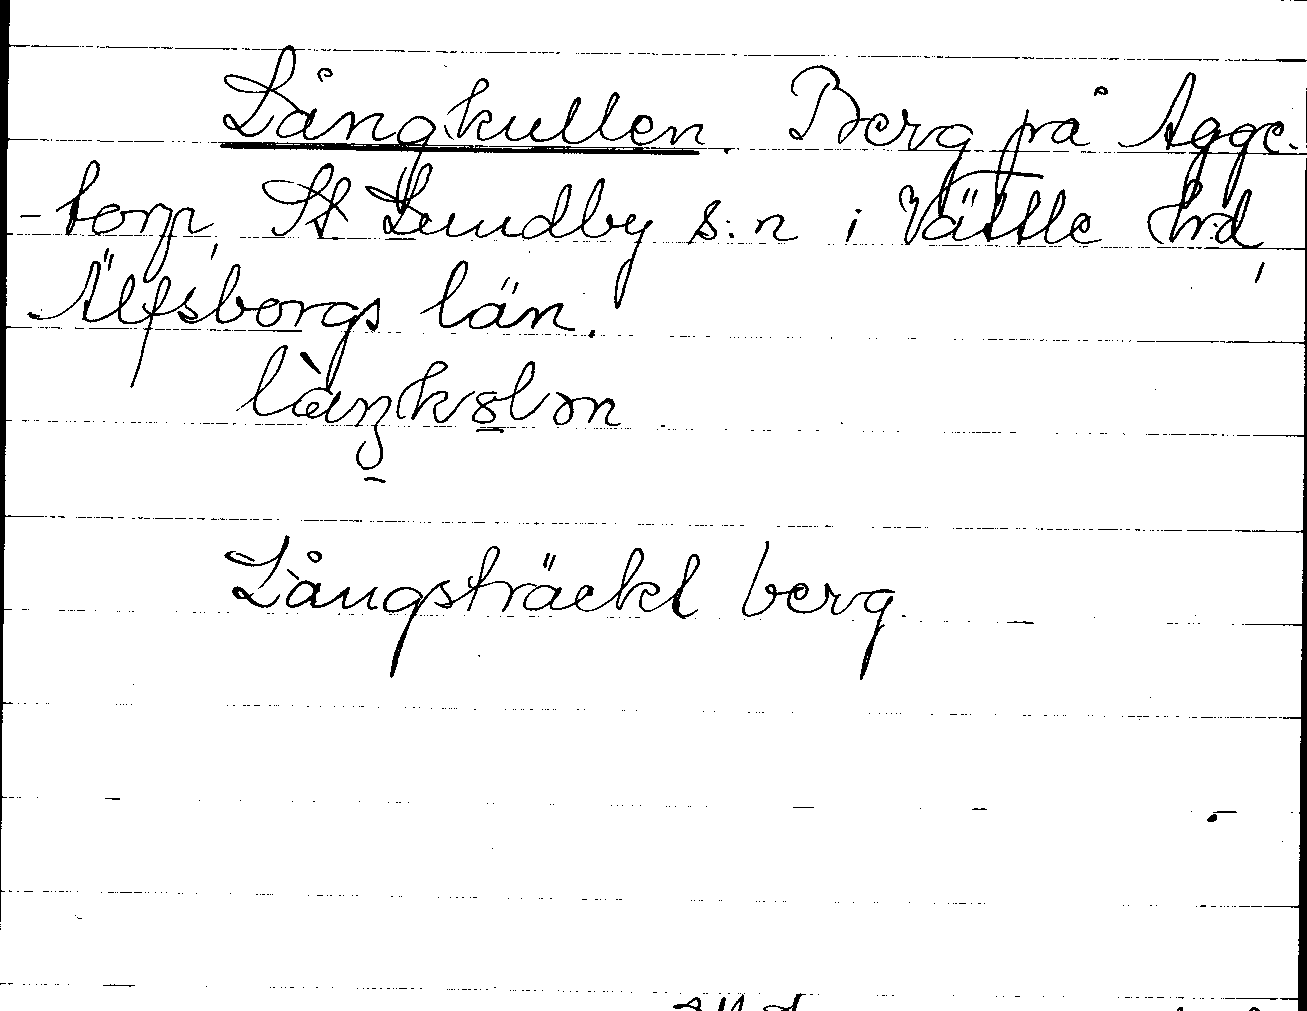 Långkullen. Berg på Agge-
-torp, St. Lundby s:n i Vättle hd,
Älfsborgs län.
Långsträckt berg.